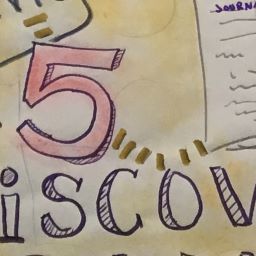 JOURNA
5
iSCOV